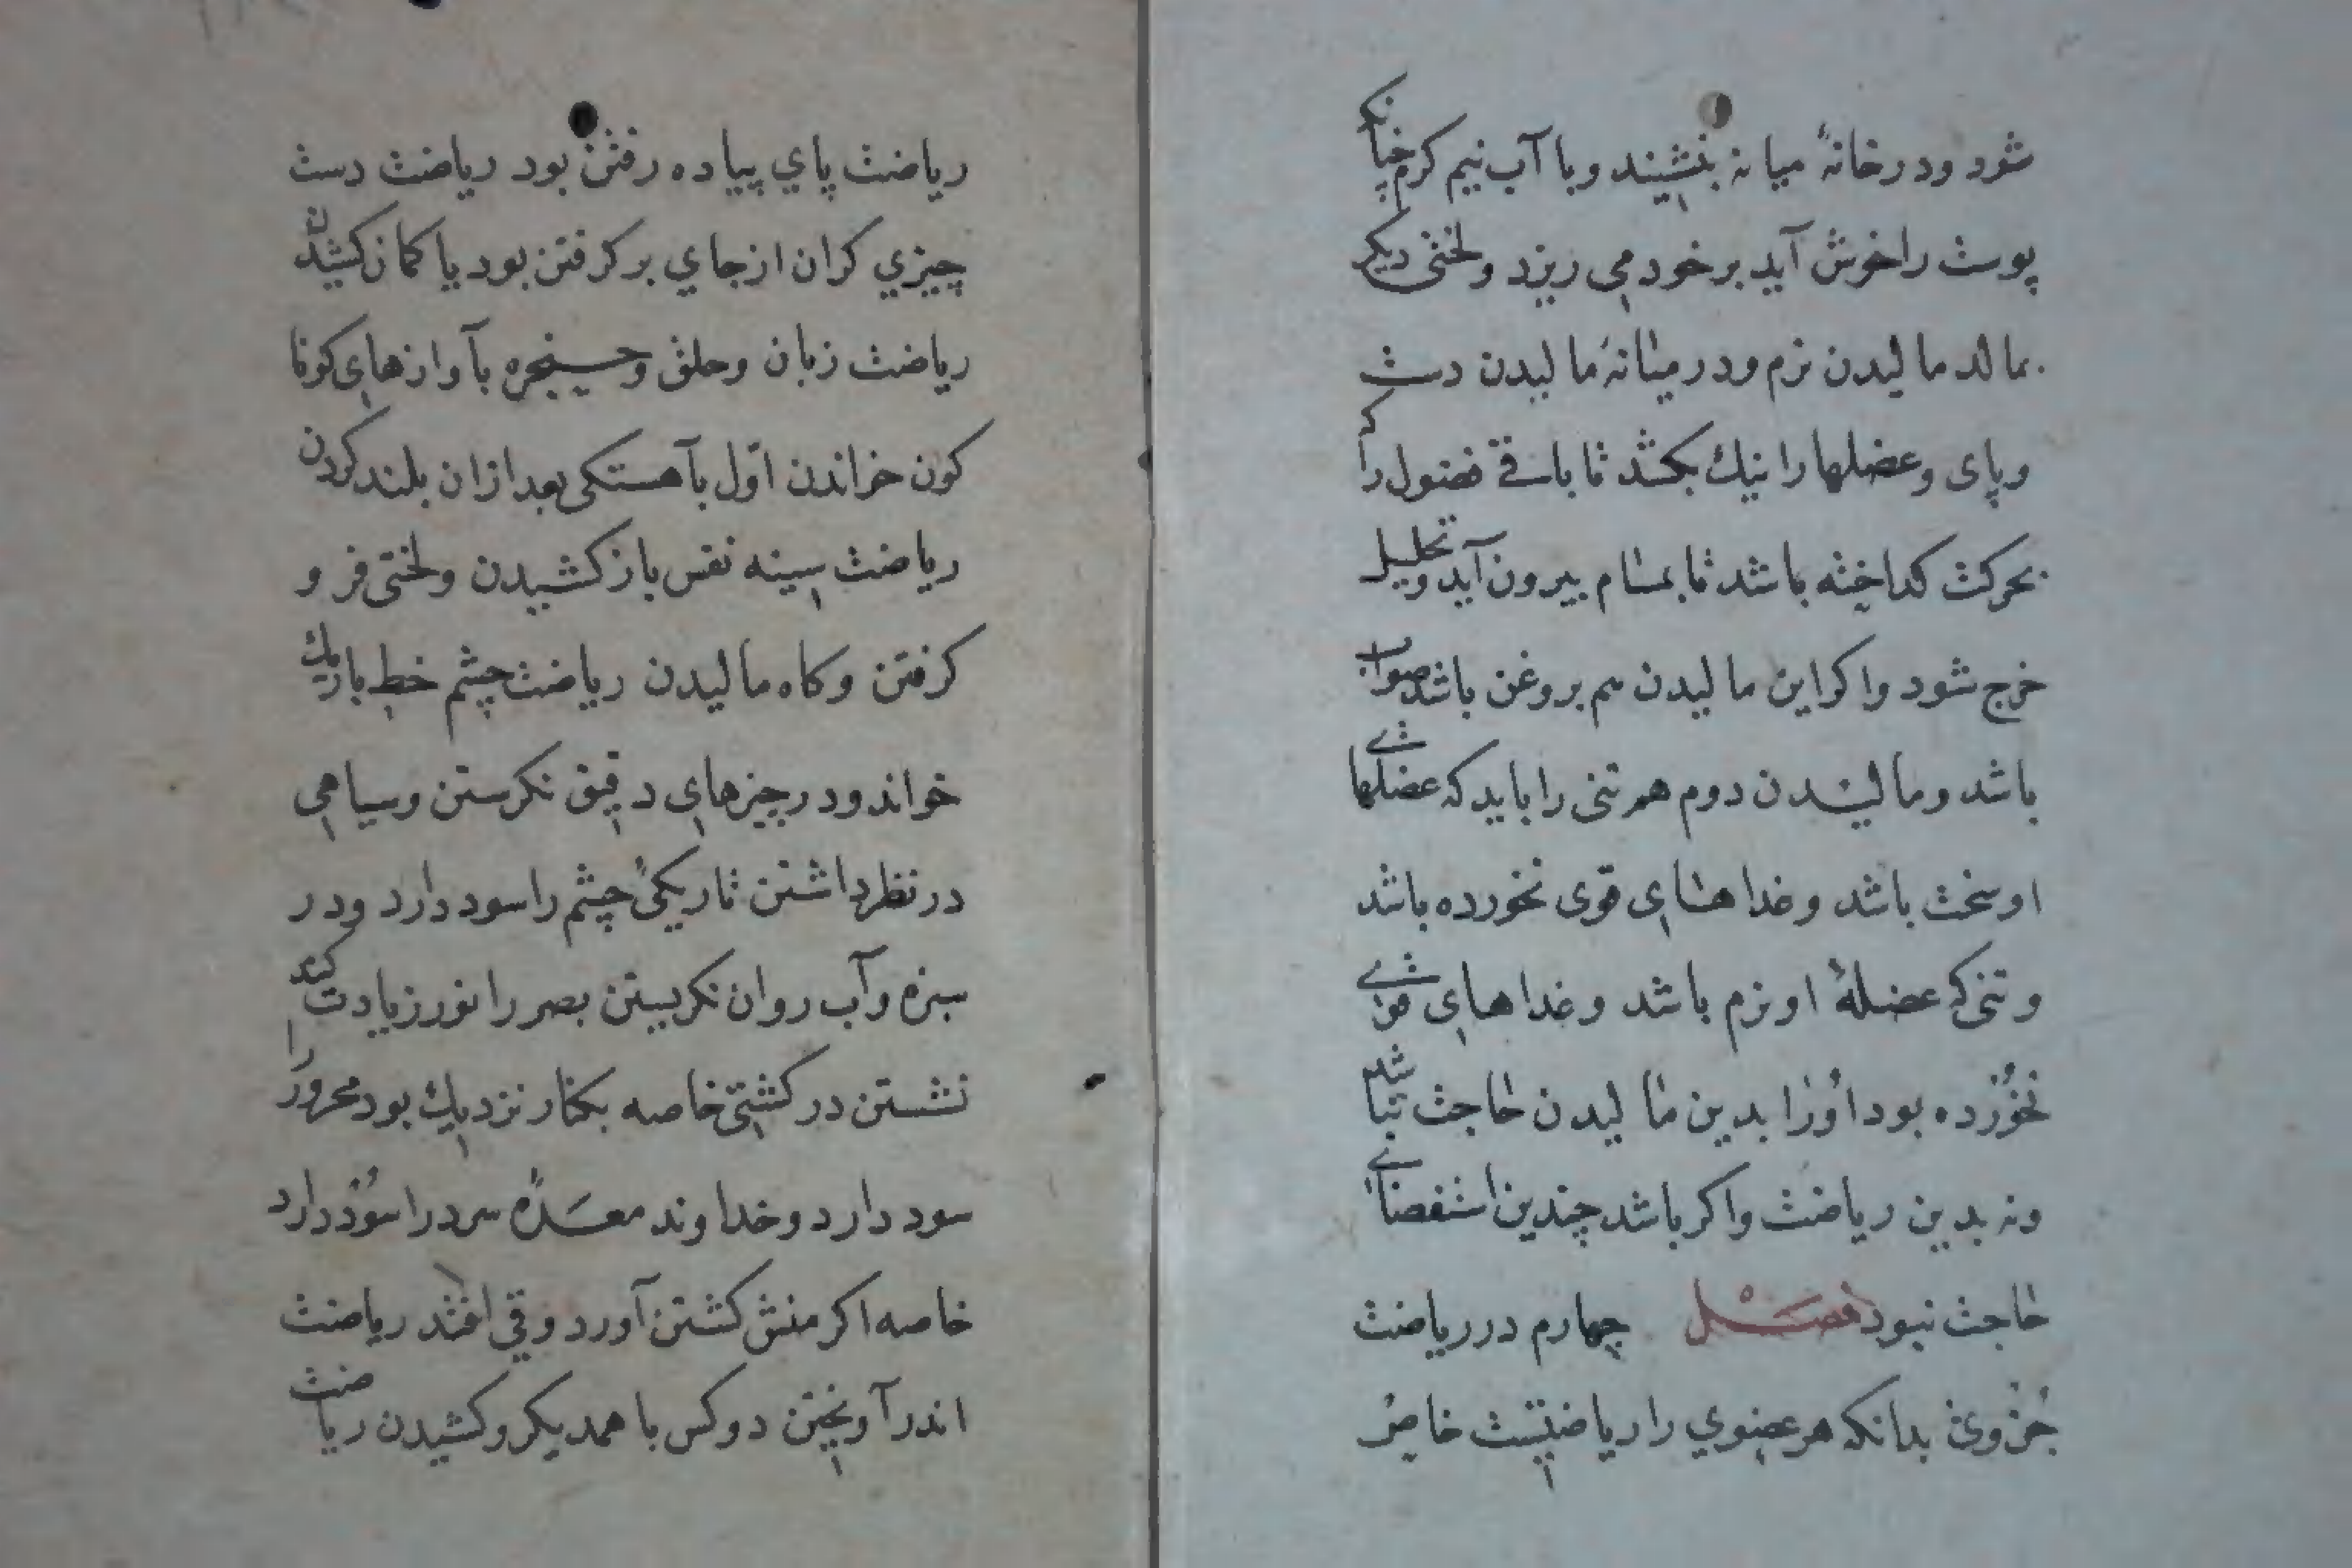 شود ودر خانهٔ میانه بنشیند وبا آب نیم کرم چنانک
پوست را خوش آید بر خود می ریزد ولختی دیکر
بمالد مالیدن نرم ودر میانهٔ مالیدن دست
وپای وعضلها را نیك بکشد تا باقی فضول را که
بحرکت کداخته باشد تا بمسام بیرون آید وتحلیل
خرج شود واکر این مالیدن هم بروغن باشد صواب
باشد ومالیدن دوم هر تنی را باید که عضلهای
او سخت باشد وغداهای قوی نخورده باشد
وتنی که عضلهٔ او نرم باشد وغداهای قوی
نخورده بود اورا بدین مالیدن حاجت نباشد
ونه بدین ریاضت واکر باشد چندین استقصای
حاجت نبود فصل چهارم در ریاضت
جزوی بدانکه هر عضوي را ریاضتیست خاص
ریاضت پاي پیاده رفتن بود ریاضت دست
چیزي کران از جاي بر کرفتن بود یا کمان کشیدن
ریاضت زبان وحلق وحنجره بآوازهای کوناکون
خواندن اوّل بآهستکی بعد ازان بلند کردن
ریاضت سینه نفس باز کشیدن ولختی فرو
کرفتن وکاه مالیدن ریاضت چشم خط باریك
خواند ودر چیزهای دقیق نکرستن وسیاهی
در نظر داشتن تاریکیٔ چشم را سود دارد ودر
سبزه وآب روان نکریستن بصر را نور زیادت کند
نشستن در کشتی خاصه بکنار نزدیك بود محرور را
سود دارد وخداوند معدهٔ سرد را سود دارد
خاصه اکر منش کشتن آورد وقی افتد ریاضت
اندر آویختن دو کس با همدیکر وکشیدن ریاضت